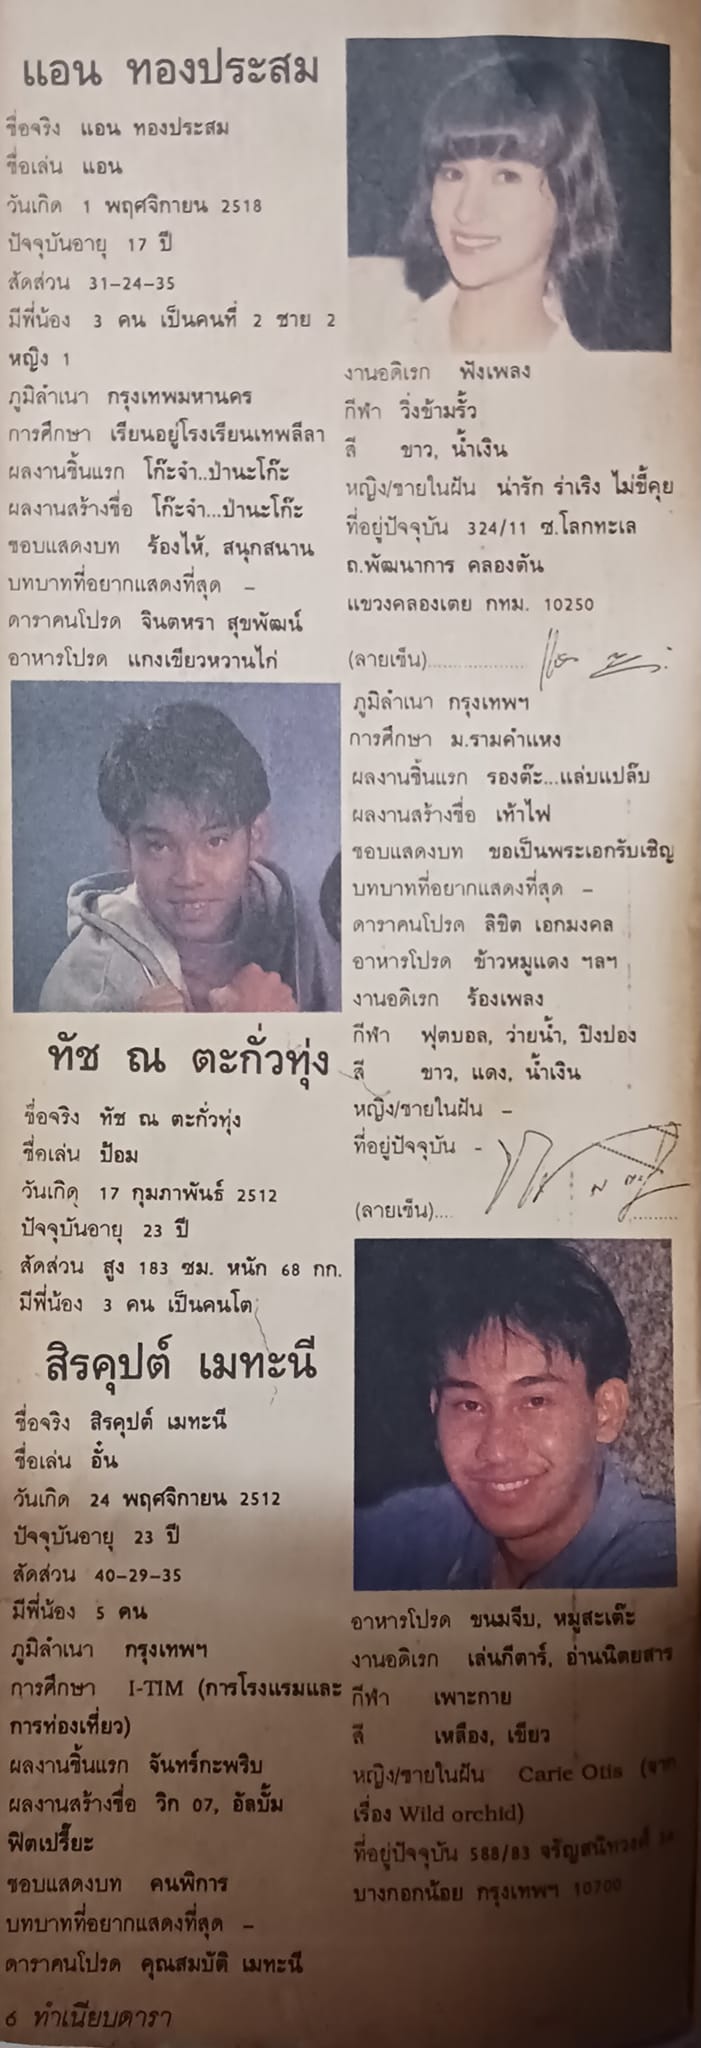 แอน ทองประสม
ชื่อจริง แอน ทองประสม
ชื่อเล่น แอน
วันเกิด 1 พฤศจิกายน 2518
ปัจจุบันอายุ 17 ปี
สัดส่วน 31-24-35
มีพี่น้อง 3 คน เป็นคนที่ 2 ชาย 2
หญิง 1
ภูมิลำเนา กรุงเทพมหานคร
การศึกษา เรียนอยู่โรงเรียนเทพลีลา
ผลงานชิ้นแรก โก๊ะจ๋า..ป่านะโก๊ะ
ผลงานสร้างชื่อ โก๊ะจ๋า...ป่านะโก๊ะ
ชอบแสดงบท ร้องไห้, สนุกสนาน
บทบาทที่อยากแสดงที่สุด –
ดาราคนโปรด จินตหรา สุขพัฒน์
อาหารโปรด แกงเขียวหวานไก่
งานอดิเรก ฟังเพลง
กีฬา วิ่งข้ามรั้ว
สี ขาว, น้ำเงิน
หญิง/ชายในฝัน น่ารัก ร่าเริง ไม่ขี้คุย
ที่อยู่ปัจจุบัน 324/11 ซ.โลกทะเล
ถ.พัฒนาการ คลองตัน
แขวงคลองเตย กทม. 10250
(ลายเซ็น)....................
ทัช ณ ตะกั่วทุ่ง
ชื่อจริง ทัช ณ ตะกั่วทุ่ง
ชื่อเล่น ป้อม
วันเกิด 17 กุมภาพันธ์ 2512
ปัจจุบันอายุ 23 ปี
สัดส่วน สูง 183 ซม. หนัก 68 กก.
มีพี่น้อง 3 คน เป็นคนโต
ภูมิลำเนา กรุงเทพฯ
การศึกษา ม.รามคำแหง
ผลงานชิ้นแรก รองต๊ะ...แล่บแปล๊บ
ผลงานสร้างชื่อ เท้าไฟ
ชอบแสดงบท ขอเป็นพระเอกรับเชิญ
บทบาทที่อยากแสดงที่สุด –
ดาราคนโปรด ลิขิต เอกมงคล
อาหารโปรด ข้าวหมูแดง ฯลฯ
งานอดิเรก ร้องเพลง
กีฬา ฟุตบอล, ว่ายน้ำ, ปิงปอง
สี ขาว, แดง, น้ำเงิน
หญิง/ชายในฝัน –
ที่อยู่ปัจจุบัน -
(ลายเซ็น)....
สิรคุปต์ เมทะนี
ชื่อจริง สิรคุปต์ เมทะนี
ชื่อเล่น อั๋น
วันเกิด 24 พฤศจิกายน 2512
ปัจจุบันอายุ 23 ปี
สัดส่วน 40-29-35
มีพี่น้อง 5 คน
ภูมิลำเนา กรุงเทพฯ
การศึกษา I-TIM (การโรงแรมและ
การท่องเที่ยว)
ผลงานชิ้นแรก จันทร์กะพริบ
ผลงานสร้างชื่อ วิก 07, อัลบั้ม
ฟิตเปรี๊ยะ
ชอบแสดงบท คนพิการ
บทบาทที่อยากแสดงที่สุด –
ดาราคนโปรด คุณสมบัติ เมทะนี
อาหารโปรด ขนมจีบ, หมูสะเต๊ะ
งานอดิเรก เล่นกีตาร์, อ่านนิตยสาร
กีฬา เพาะกาย
สี เหลือง, เขียว
หญิง/ชายในฝัน Carie Otis (จาก
เรื่อง Wild orchid)
ที่อยู่ปัจจุบัน 588/83 จรัญสนิทวงศ์
บางกอกน้อย กรุงเทพฯ 10700
๖ ทำเนียบดารา